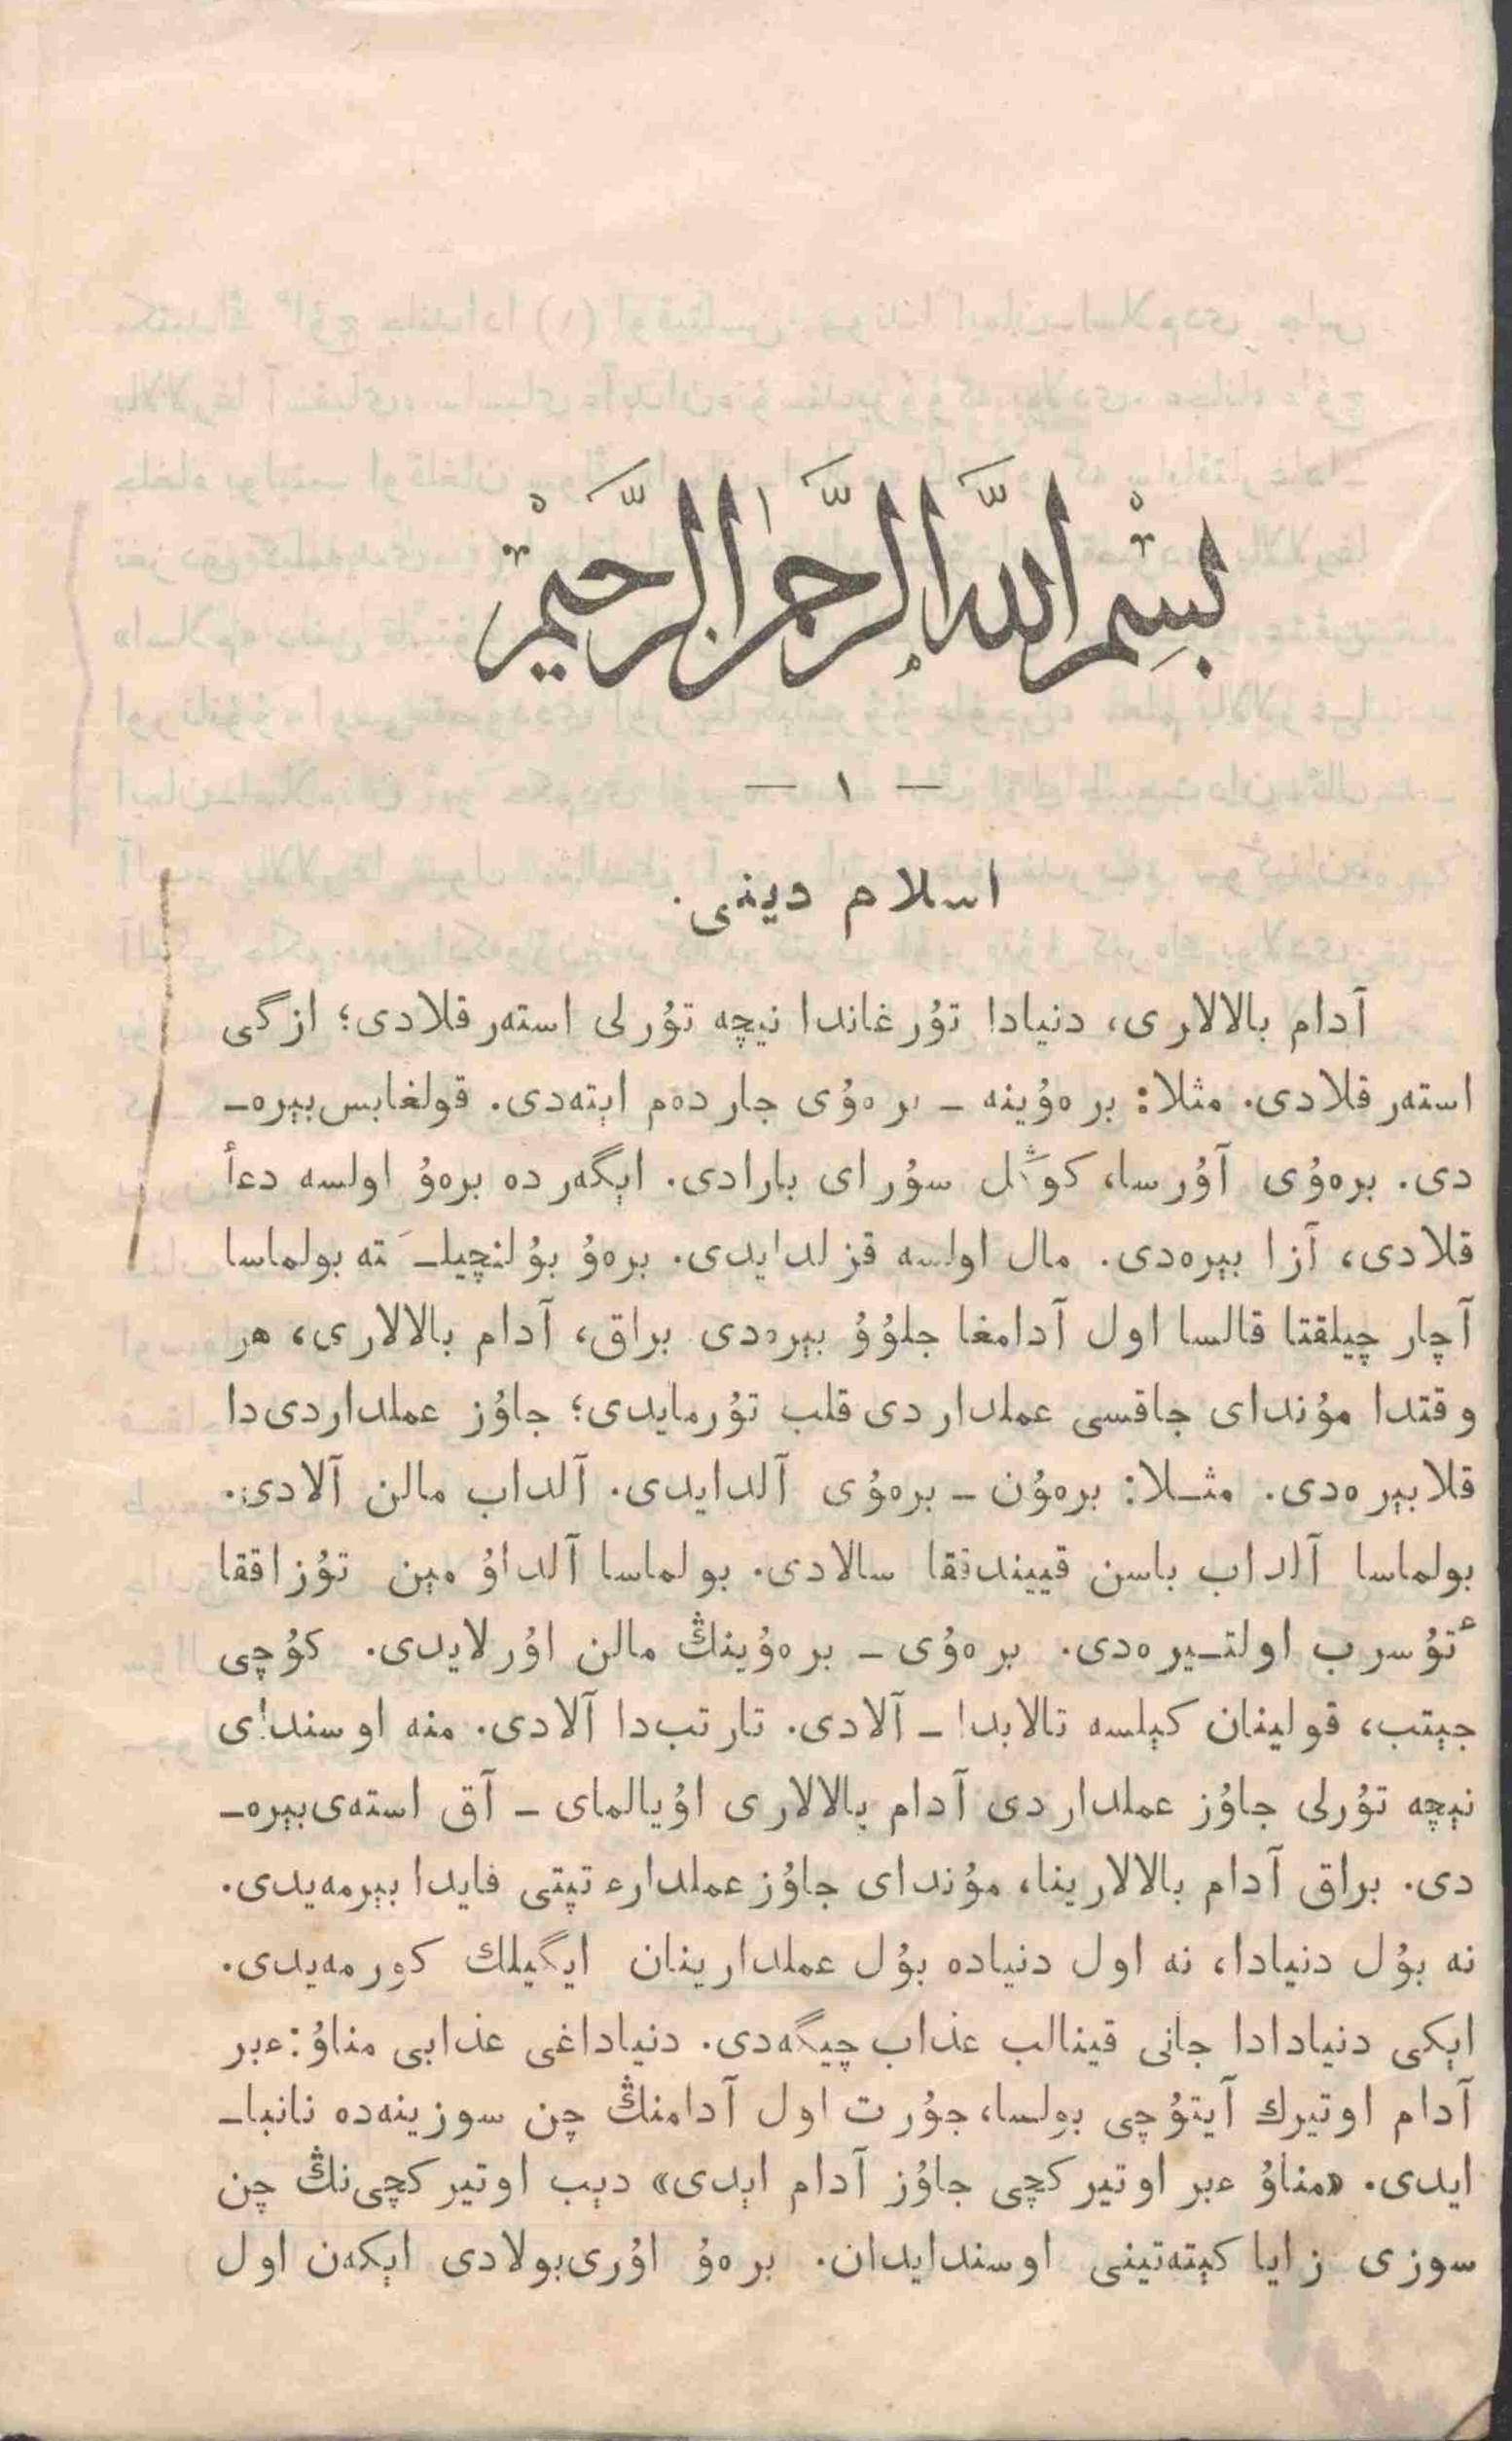 بِسْمِ اللَّهِ الرَّحْمٰنِ الرَّحِيْمِ
— ١ —
اسلام دينى.
آدام بالالارى، دنيادا تۇرغاندا نيچە تۇرلى استەر قلادى؛ ازگى
استەر قلادى. مثلا: برەۇينە ـ برەۇى جاردەم ايتەدى. قولغابس بيرەـ
دى. برەۇى آۇرسا، كوڭل سۇراى بارادى. ايگەردە برەۇ اولسە دعأ
قلادى، آزا بيرەدى. مال اولسە قزلدايدى. برەۇ بۇلنچيلـ تە بولماسا
آچار چيلقتا قالسا اول آدامغا جلۇۇ بيرەدى براق، آدام بالالارى، هر
وقتدا مۇنداى جاقسى عملداردى قلب تۇرمايدى؛ جاۇز عملداردى‌دا
قلابيرەدى. مثلا: برەۇن ـ برەۇى آلدايدى. آلداب مالن آلادى.
بولماسا آلداب باسن قييندقا سالادى. بولماسا آلداۇ مېن تۇزاققا
ٴتۇسرب اولتـيرەدى. برەۇى ـ برەۇينڭ مالن اۇرلايدى. كۇچى
جېتب، قولينان كېلسە تالابدا ـ آلادى. تارتب‌دا آلادى. منە اوسنداى
نېچە تۇرلى جاۇز عملداردى آدام بالالارى اۇيالماى ـ آق استەى‌بيرەـ
دى. براق آدام بالالارينا، مۇنداى جاۇز عملدارء تپتى فايدا بېرمەيدى.
نە بۇل دنيادا، نە اول دنيادە بۇل عملدارينان ايگيلك كورمەيدى.
اېكى دنيادادا جانى قينالب عذاب چيگەدى. دنياداغى عذابى مناۇ: ءبر
آدام اوتيرك آيتۇچى بولسا، جۇرت اول آدامنڭ چن سوزينەدە نانباـ
ايدى. «مناۇ ءبر اوتيركچى جاۇز آدام اېدى» دېب اوتيركچى‌نڭ چن
سوزى زايا كېتەتينى اوسندايدان. برەۇ اۇرى‌بولادى اېكەن اول